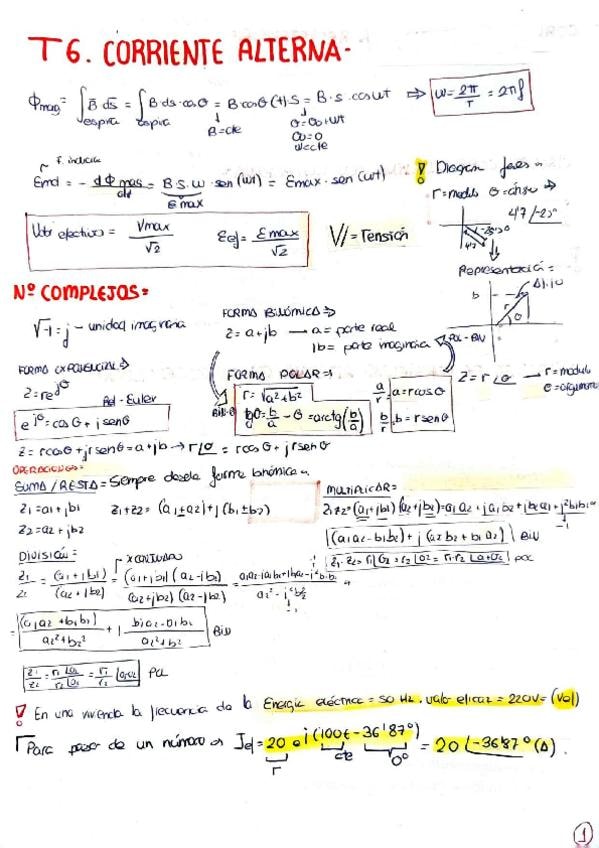 T6. CORRIENTE ALTERNA-
Φmag = ∫espira B⃗ ds⃗ = ∫espira B·ds·cosΘ = B·cosΘ(t)·S = B·S·cosωt ⇒ ω = 2π/T = 2πf
B=cte
Θ=Θo+ωt
Θo=0
ω=cte
F. inducida
Emd = - dΦmag/dt = B·S·ω·sen(ωt) = Emax·sen(ωt)
Emax
Valor efectivo = Vmax/√2 Eef = Emax/√2
V// = Tensión
! Diagrama fases
r=modulo Θ=ángulo ⇒
Representación =
Nº COMPLEJOS =
√-1 = j - unidad imaginaria
FORMA BINÓMICA ⇒
Z = a+jb → a = parte real
b = parte imaginaria
POL - BIN
FORMA EXPONENCIAL ⇒
Z = re^jΘ
Pol - Euler
e^jΘ = cosΘ + jsenΘ
FORMA POLAR ⇒
BIN-POL
r = √a²+b²
tgΘ = b/a - Θ = arctg(b/a)
a/r a = rcosΘ
b/r b = rsenΘ
Z = r∠Θ → r = modulo
Θ = argumento
Z = rcosΘ + jrsenΘ = a+jb → r∠Θ = rcosΘ + jrsenΘ
OPERACIONES =
SUMA/RESTA = Siempre desde forma binómica
Z1 = a1 + jb1 Z1±Z2 = (a1±a2) + j(b1±b2)
Z2 = a2 + jb2
MULTIPLICAR =
Z1·Z2 = (a1+jb1)(a2+jb2) = a1a2 + ja1b2 + jb1a2 + j²b1b2
-1
(a1a2 - b1b2) + j(a2b2 + b1a2) BIN
Z1·Z2 = r1∠Θ1 · r2∠Θ2 = r1·r2∠Θ1+Θ2 POL
División =
x CONJUGADO
Z1/Z2 = (a1+jb1)/(a2+jb2) = (a1+jb1)(a2-jb2)/(a2+jb2)(a2-jb2) = a1a2-ja1b2+jb1a2-j²b1b2/a2²-j²b2²
= (a1a2+b1b2)/a2²+b2² + j b1a2-a1b2/a2²+b2² BIN
Z1/Z2 = r1∠Θ1/r2∠Θ2 = r1/r2 ∠Θ1-Θ2 POL
! En una vivienda la frecuencia de la Energía eléctrica = 50 Hz, valor eficaz = 220V = (Vef)
Para pasar de un número Jef = 20 e^j(100t - 36'87º) = 20∠-36'87º (A).
r cte Θº
1